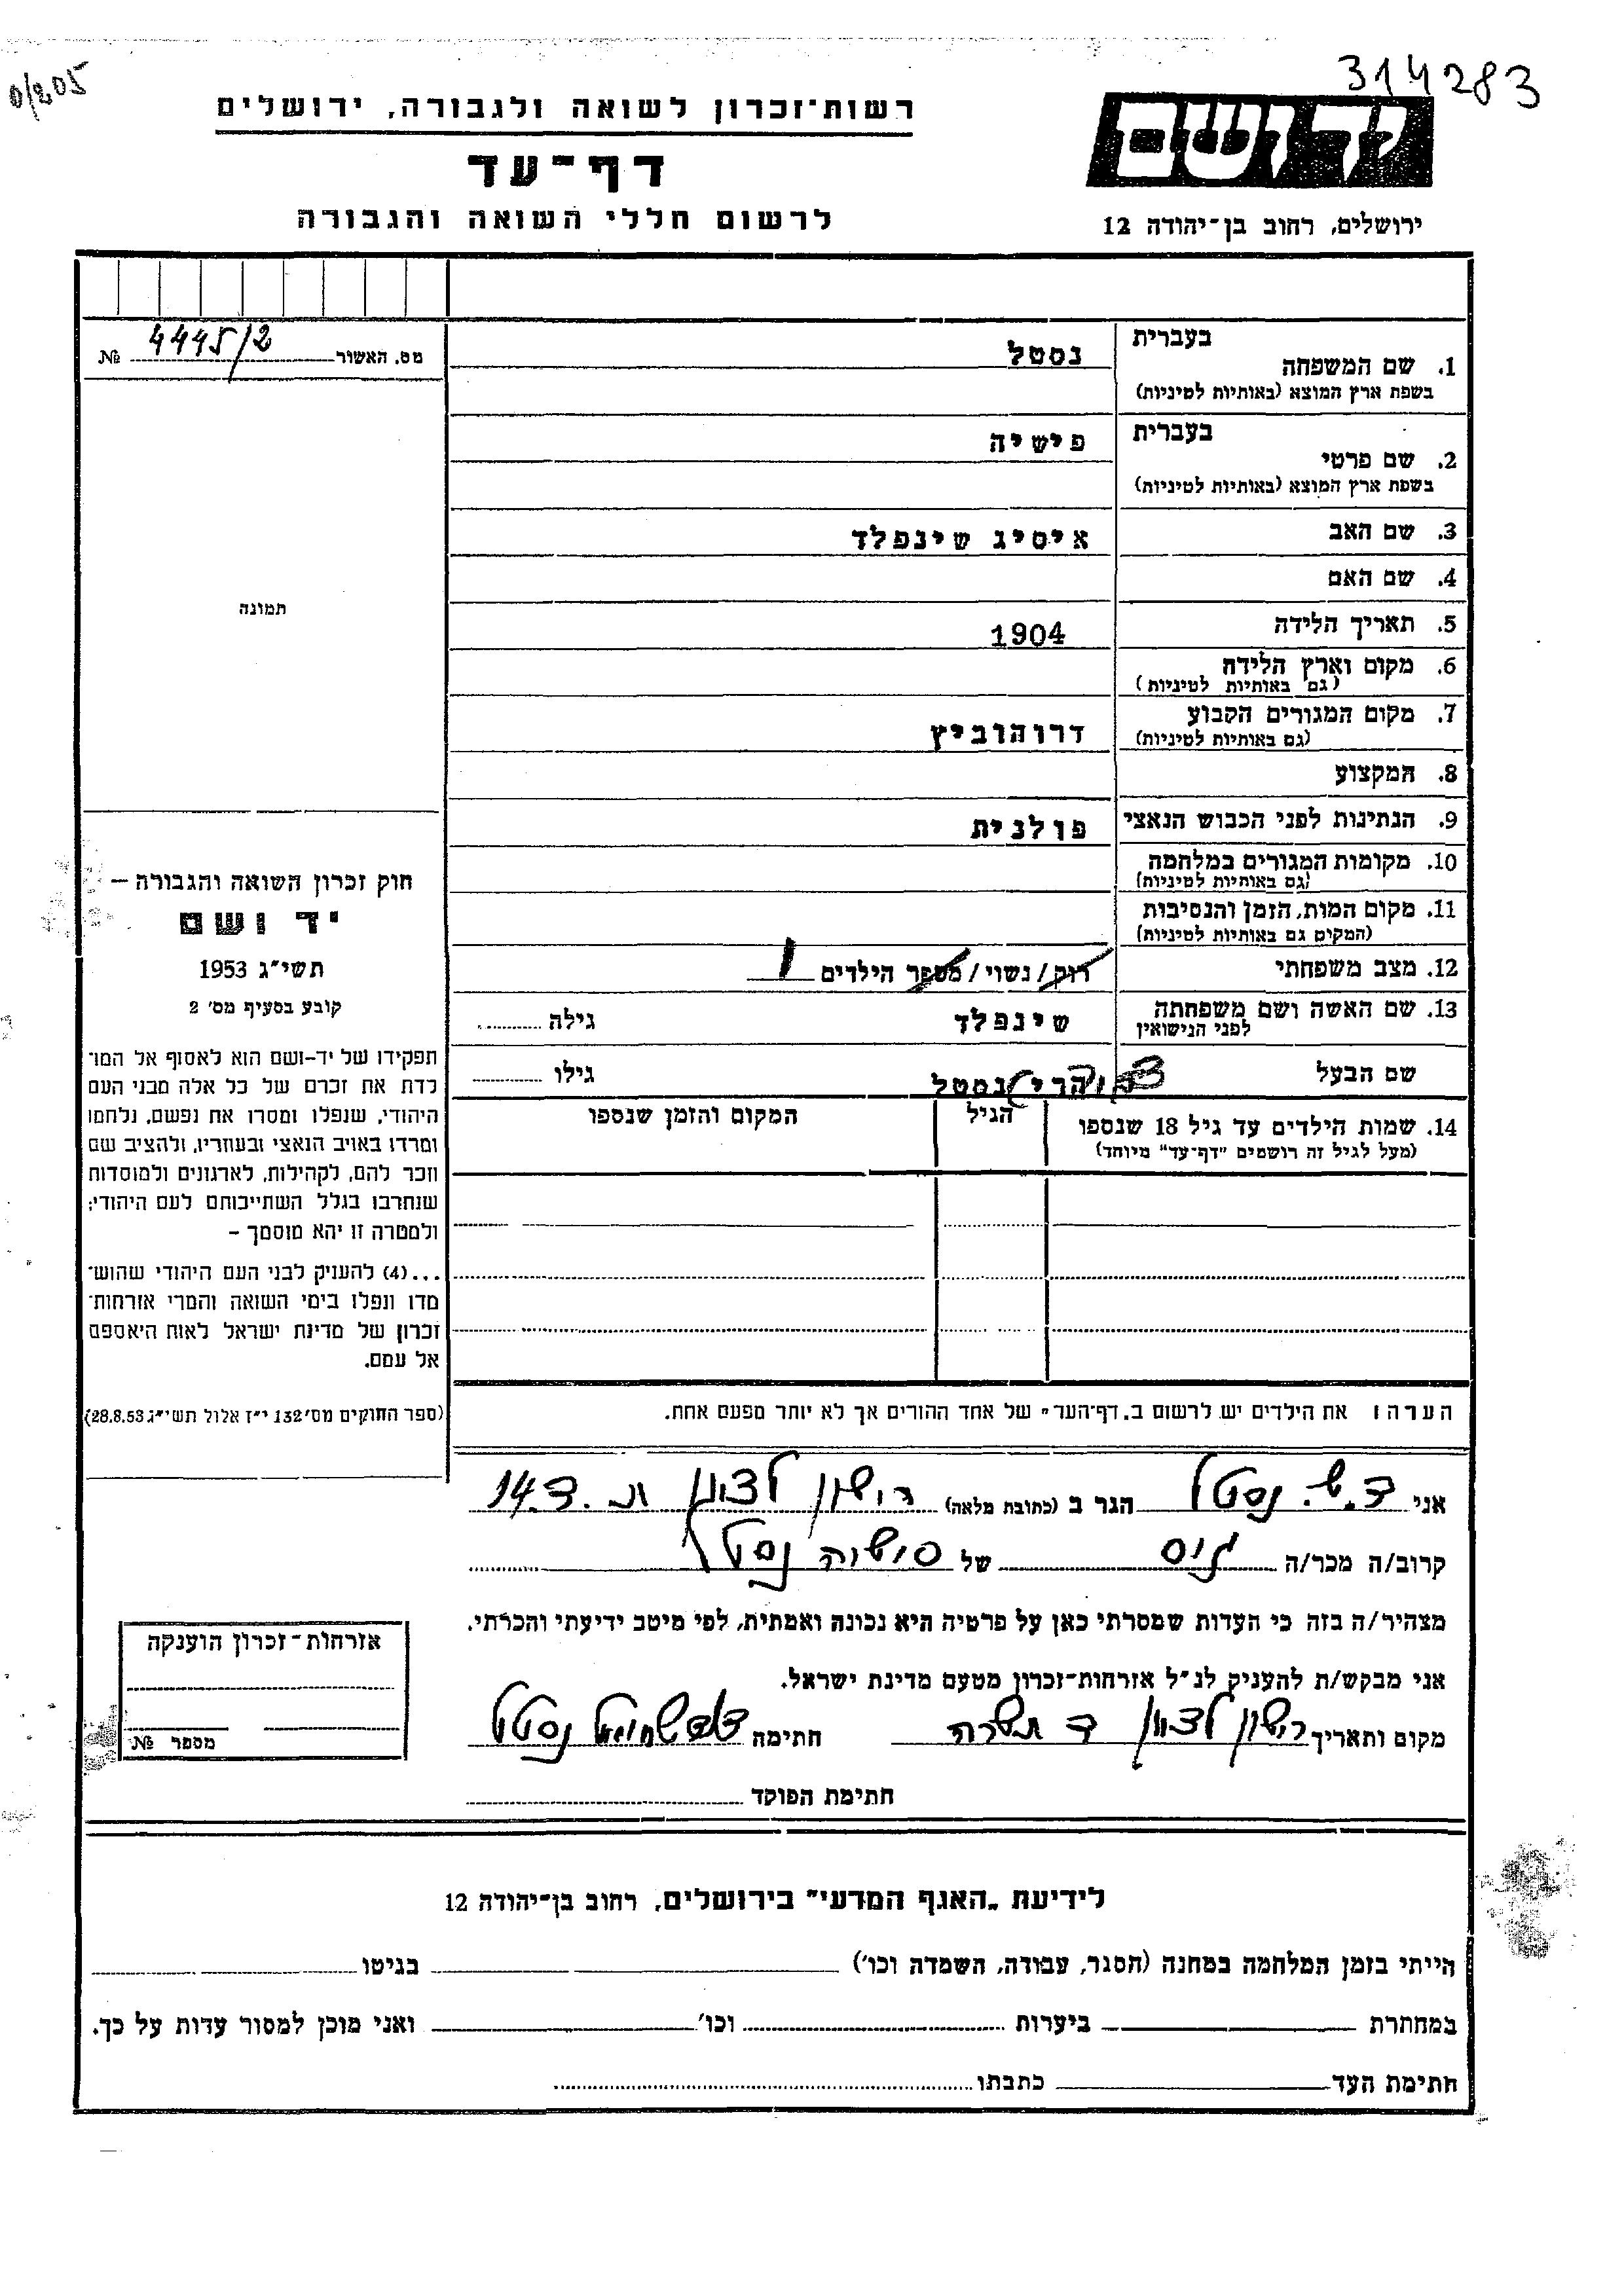 314283
0/205
ידושם
ירושלים, רחוב בן־יהודה 12
רשות־זכרון לשואה ולגבורה, ירושלים
דף־עד
לרשום חללי השואה והגבורה
מס. האשור 4445/2 №
תמונה
חוק זכרון השואה והגבורה –
יד ושם
תשי״ג 1953
קובע בסעיף מס׳ 2
תפקידו של יד-ושם הוא לאסוף אל המו־
לדת את זכרם של כל אלה מבני העם
היהודי, שנפלו ומסרו את נפשם, נלחמו
ומרדו באויב הנאצי ובעוזריו, ולהציב שם
וזכר להם, לקהילות, לארגונים ולמוסדות
שנחרבו בגלל השתייכותם לעם היהודי;
ולמטרה זו יהא מוסמך –
...(4) להעניק לבני העם היהודי שהוש־
מדו ונפלו בימי השואה והמרי אזרחות־
זכרון של מדינת ישראל לאות היאספם
אל עמם.
(ספר החוקים מס׳ 132 י״ז אלול תשי״ג 28.8.53)
בעברית
1. שם המשפחה נסטל
בשפת ארץ המוצא (באותיות לטיניות)
בעברית
2. שם פרטי פישיה
בשפת ארץ המוצא (באותיות לטיניות)
3. שם האב איסיג שינפלד
4. שם האם
5. תאריך הלידה 1904
6. מקום וארץ הלידה
(גם באותיות לטיניות)
7. מקום המגורים הקבוע דרוהוביץ
(גם באותיות לטיניות)
8. המקצוע
9. הנתינות לפני הכבוש הנאצי פולנית
10. מקומות המגורים במלחמה
(גם באותיות לטיניות)
11. מקום המות, הזמן והנסיבות
(המקום גם באותיות לטיניות)
12. מצב משפחתי רוק/נשוי/מספר הילדים 1
13. שם האשה ושם משפחתה שינפלד גילה
לפני הנישואין
שם הבעל נסטל גילו
14. שמות הילדים עד גיל 18 שנספו הגיל המקום והזמן שנספו
(מעל לגיל זה רושמים ״דף־עד״ מיוחד)
הערה: את הילדים יש לרשום ב„דף־העד״ של אחד ההורים אך לא יותר מפעם אחת.
אני ד.ש. נסטל הגר ב (כתובת מלאה) ראשון לציון ת.ד. 14
קרוב/ה מכר/ה גיס של פישיה נסטל
מצהיר/ה בזה כי העדות שמסרתי כאן על פרטיה היא נכונה ואמתית, לפי מיטב ידיעתי והכרתי.
אני מבקש/ת להעניק לנ״ל אזרחות־זכרון מטעם מדינת ישראל.
מקום ותאריך ראשון לציון חתימה נסטל
חתימת הפוקד
אזרחות־זכרון הוענקה
מספר №
לידיעת „האגף המדעי״ בירושלים, רחוב בן־יהודה 12
הייתי בזמן המלחמה במחנה (הסגר, עבודה, השמדה וכו׳) בגיטו
במחתרת ביערות וכו׳ ואני מוכן למסור עדות על כך.
חתימת העד כתבתו